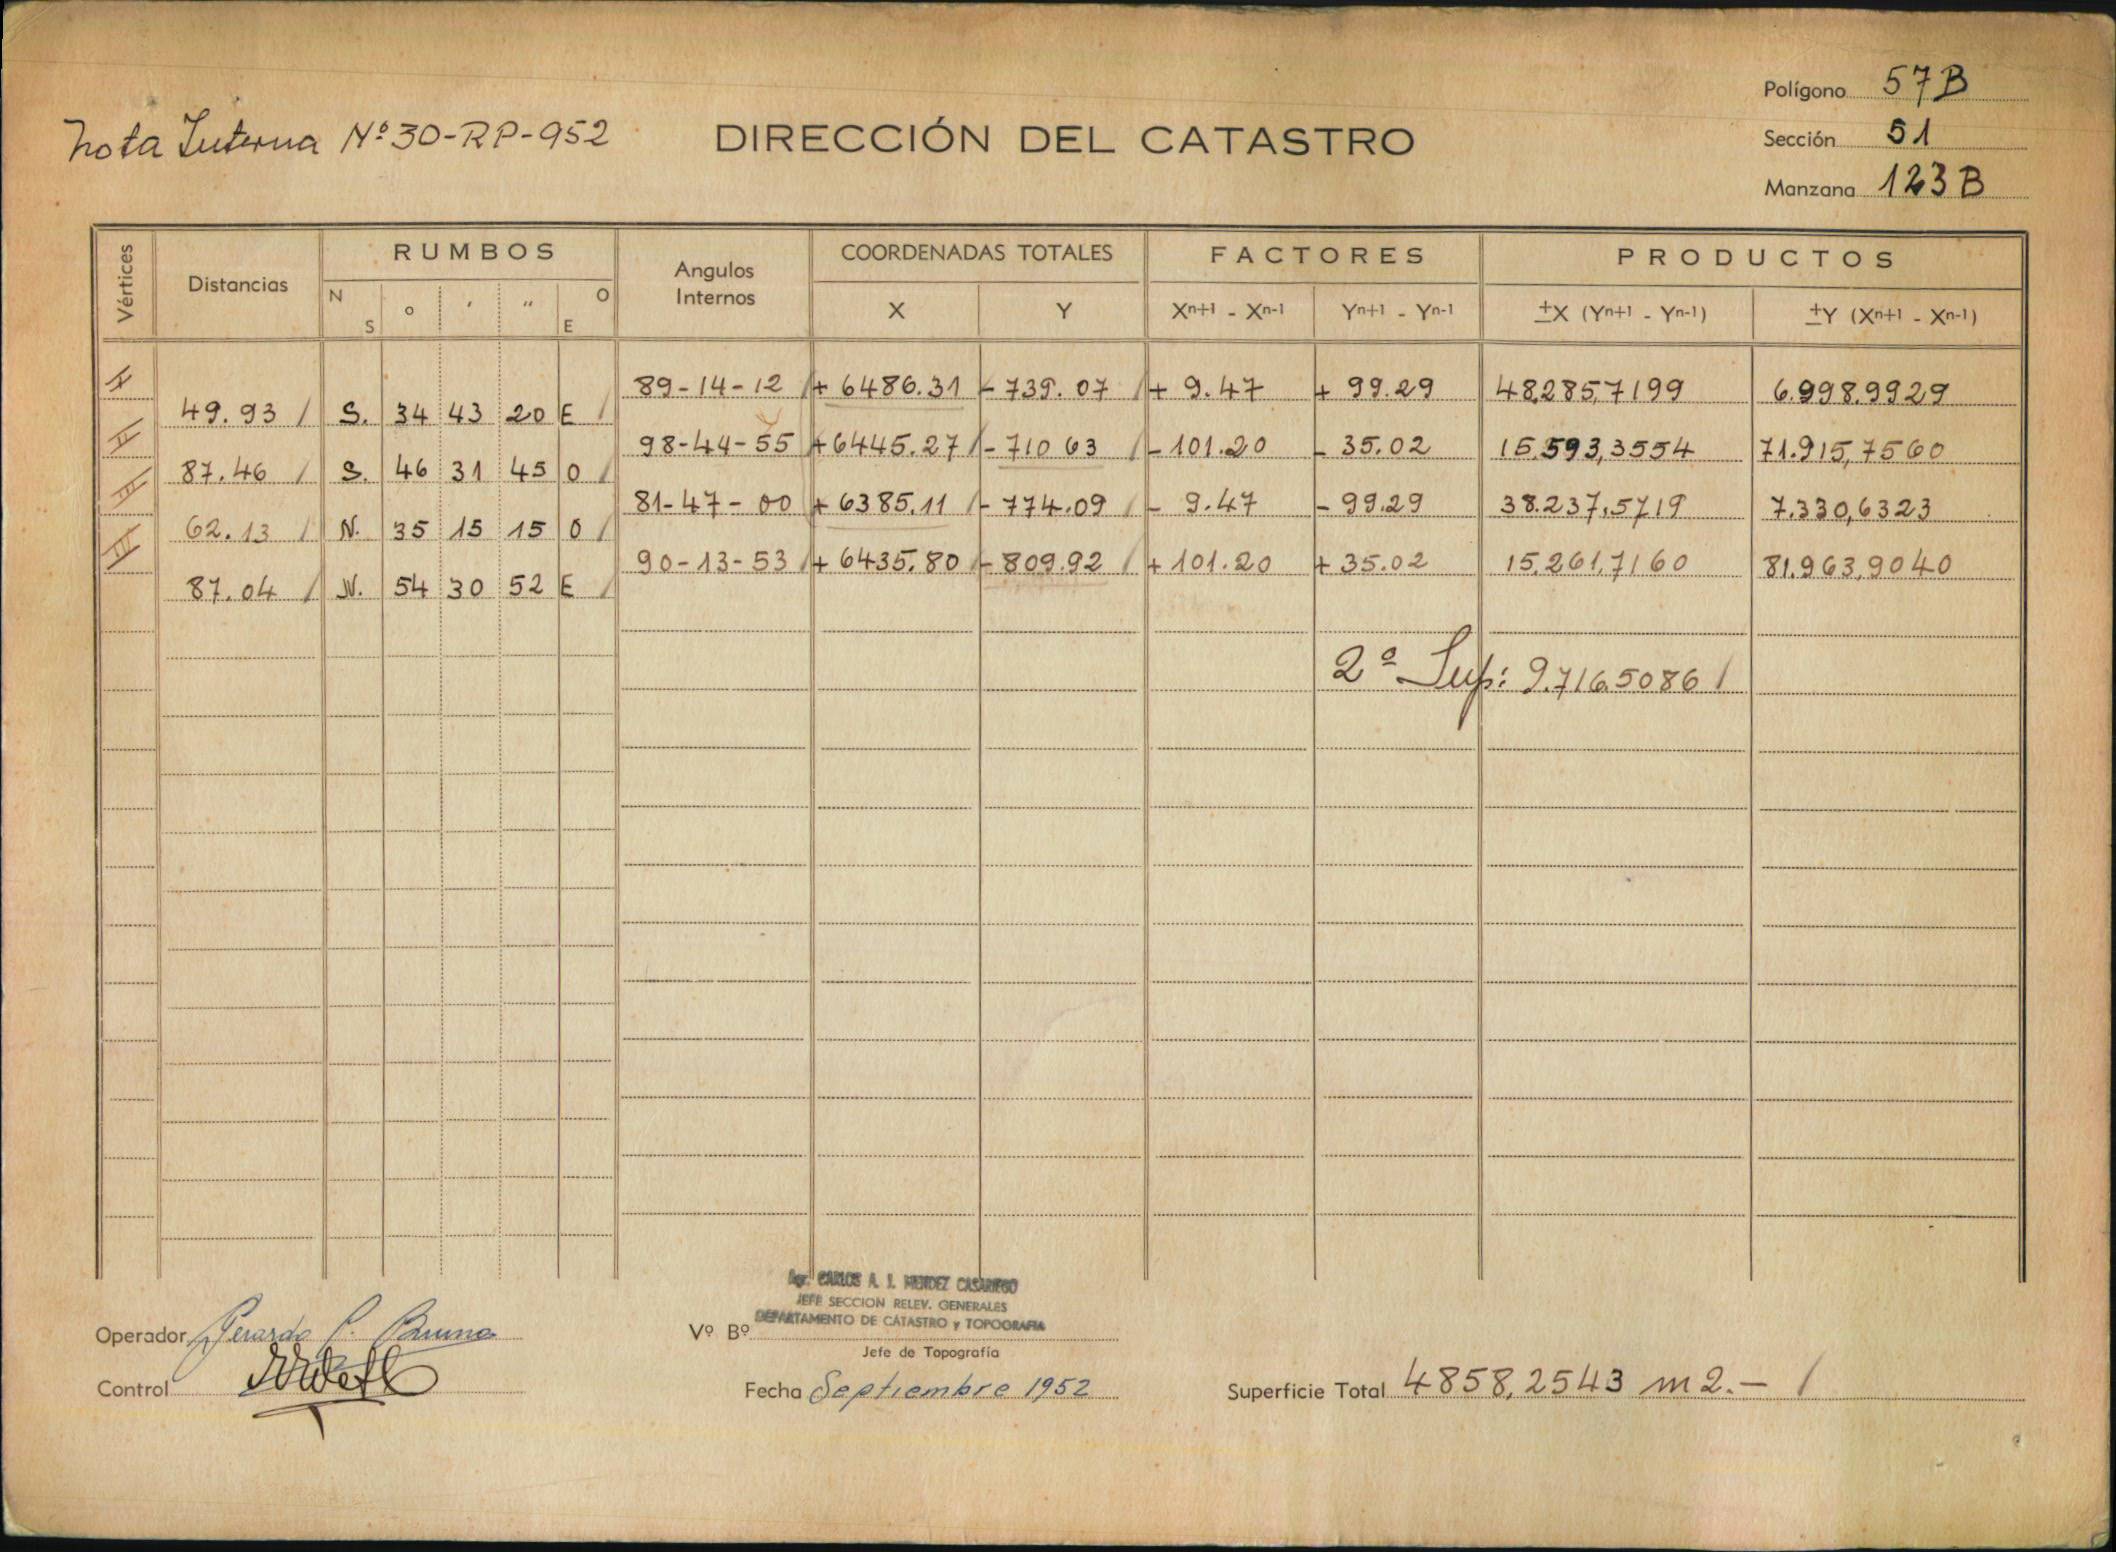 Nota Interna Nº 30-RP-952
DIRECCIÓN DEL CATASTRO
Polígono 57B
Sección 51
Manzana 123B
Vértices Distancias RUMBOS Angulos Internos COORDENADAS TOTALES FACTORES PRODUCTOS
N S o ' " O E X Y Xn+1 - Xn-1 Yn+1 - Yn-1 ±X (Yn+1 - Yn-1) ±Y (Xn+1 - Xn-1)
I 89-14-12 + 6486.31 - 739.07 + 9.47 + 99.29 48,285,7199 6.998.9929
49.93 S. 34 43 20 E
II 98-44-55 + 6445.27 - 710 63 - 101.20 - 35.02 15.593,3554 71.915,7560
87.46 S. 46 31 45 O
III 81-47-00 + 6385.11 - 774.09 - 9.47 - 99.29 38.237,5719 7.330,6323
62.13 N. 35 15 15 O
IV 90-13-53 + 6435.80 - 809.92 + 101.20 + 35.02 15,261,7160 81.963,9040
87.04 N. 54 30 52 E
2ª Sup: 9.716.5086
Agr. CARLOS A. I. MENDEZ CASARIEGO
JEFE SECCION RELEV. GENERALES
DEPARTAMENTO DE CATASTRO y TOPOGRAFIA
Operador Gerardo C. Bruno
Vº Bº
Jefe de Topografía
Control
Fecha Septiembre 1952
Superficie Total 4858,2543 m2.-